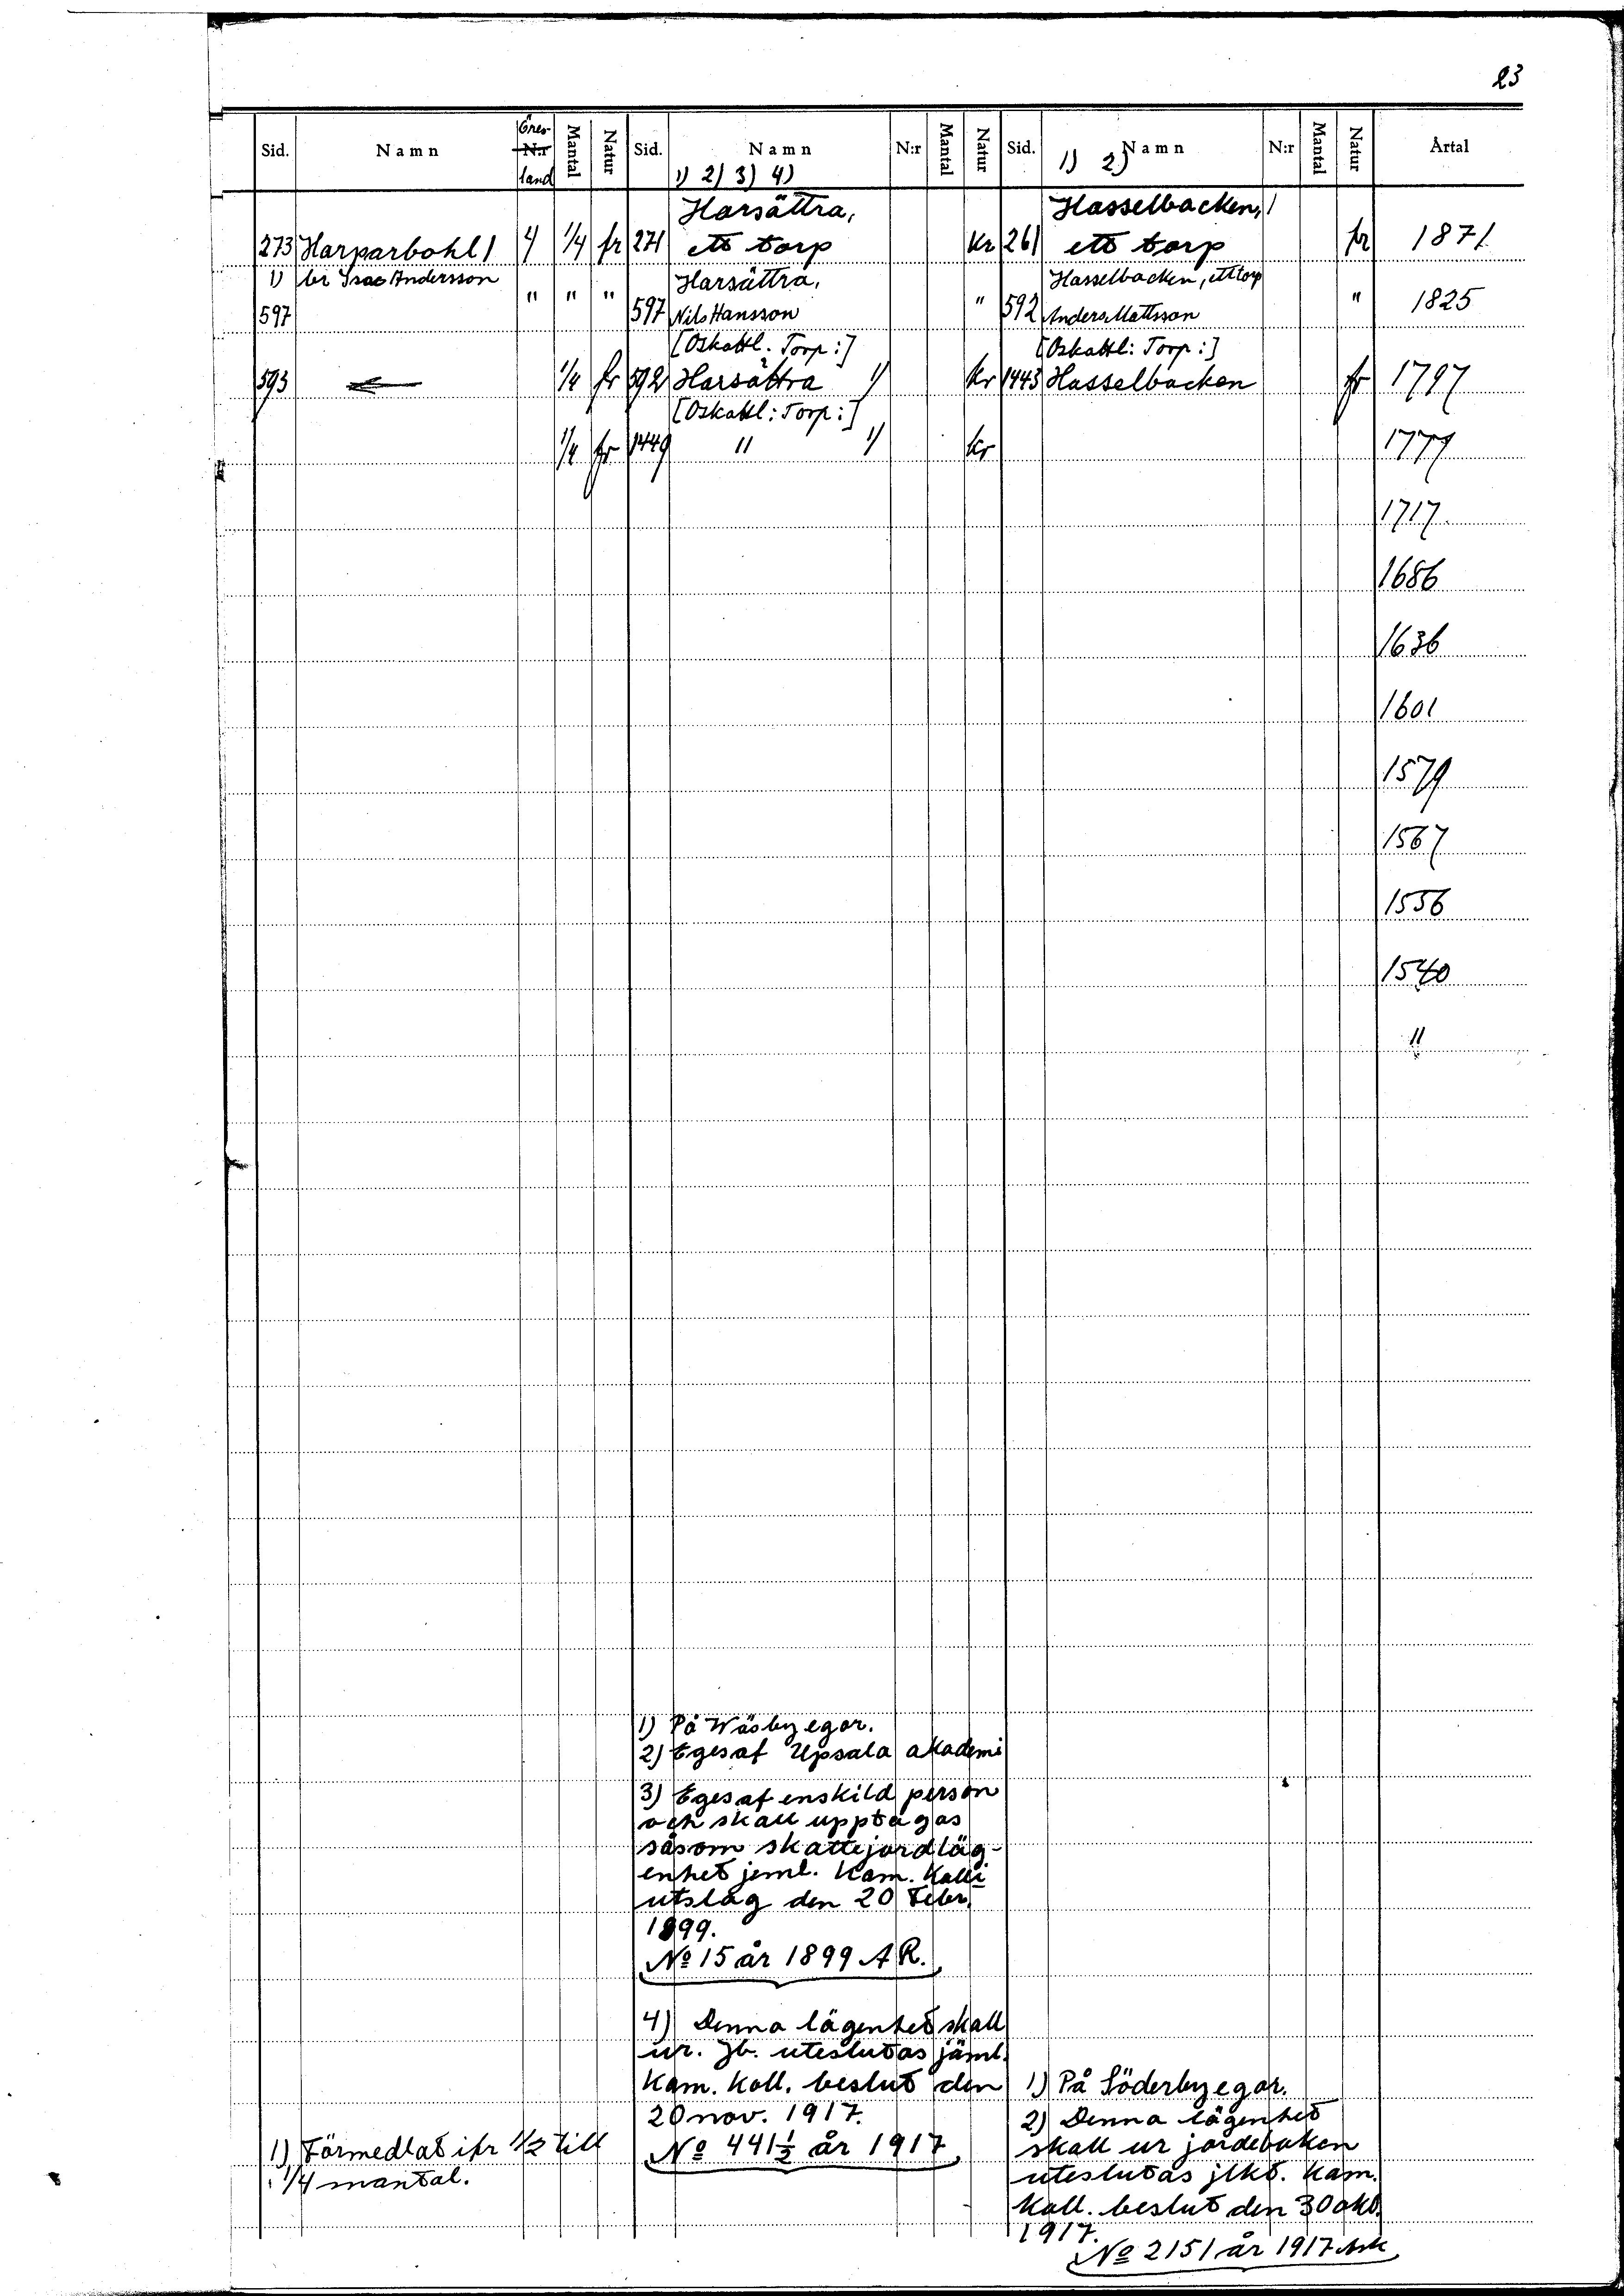 23
Sid. Namn Öres- N:r land Mantal Natur Sid. Namn N:r Mantal Natur Sid. Namn N:r Mantal Natur Årtal
1) 2) 3) 4) 1) 2)
Harsättra, Hasselbacken,
273 Harparbohl 1 4 1/4 fr 271 ett torp kr 261 ett torp fr 1871
1) br Isac Andersson Harsättra, Hasselbacken, ett torp
597 " " " 597 Nils Hansson " 592 Anders Mattsson " 1825
[Oskattl. Torp:] [Oskattl: Torp:]
593 1/4 fr 592 Harsättra 1/ kr 1443 Hasselbacken fr 1797
[Oskattl: Torp:]
1/4 fr 1449 " 1/ kr 1777
1717
1686
1636
1601
1579
1567
1556
1540
"
1) På Wäsby egor.
2) Eges af Upsala akademi
3) Eges af enskild person
och skall upptagas
såsom skattejordläg-
enhet jeml. Kam. Kolli
utslag den 20 Febr.
1899.
No 15 år 1899 A R.
4) Denna lägenhet skall
ur. Jb. uteslutas jäml.
Kam. Koll. beslut den
20 nov. 1917.
No 441½ år 1917
1) Förmedlat ifr 1/2 till
1/4 mantal.
1) På Söderby egor.
2) Denna lägenhet
skall ur jordeboken
uteslutas jlkt. Kam.
Koll. beslut den 30 okt.
1917.
No 2151 år 1917